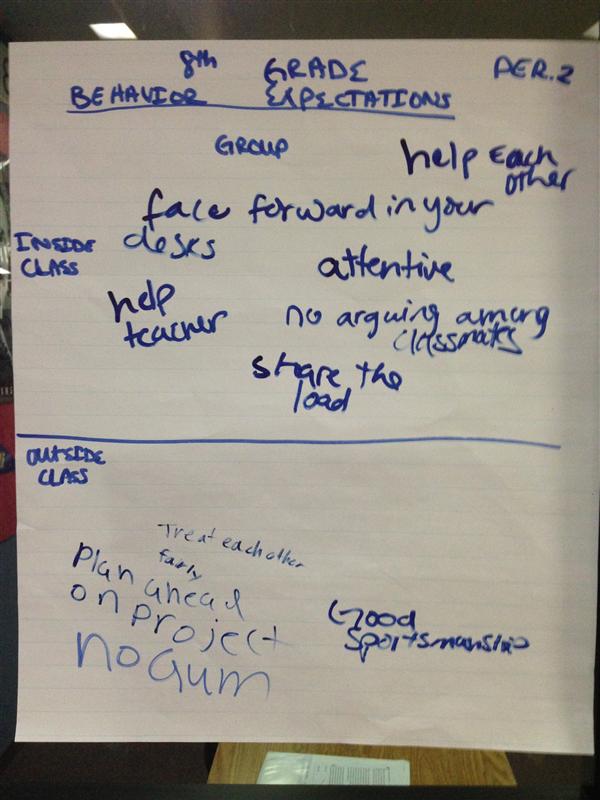 8th GRADE PER.2
BEHAVIOR EXPECTATIONS
GROUP
help each
other
INSIDE
CLASS
face forward in your
desks
attentive
help
teacher
no arguing among
classmates
share the
load
OUTSIDE
CLASS
Treat each other
fairly
Plan ahead
on project
no Gum
Good
sportsmanship